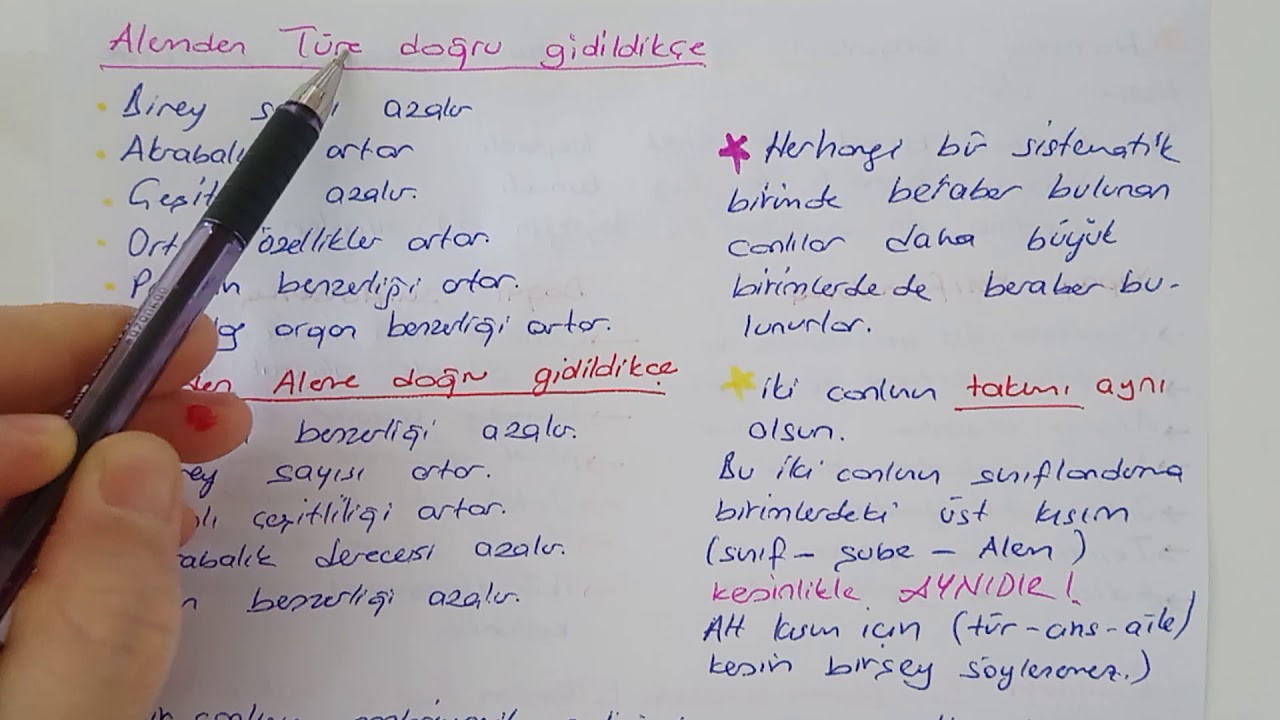 Alemden Türe doğru gidildikçe
Birey azalır
Akrabalı artar
Çeşit azalır.
Ort özellikler artar.
benzerliği artar.
organ benzerliği artar.
Aleme doğru gidildikçe
benzerliği azalır.
sayısı artar.
çeşitliliği artar.
derecesi azalır.
benzerliği azalır.
Herhangi bir sistematik
birimde beraber bulunan
canlılar daha büyük
birimlerde de beraber bu-
lunurlar.
iki canlının takımı aynı
olsun.
Bu iki canlının sınıflandırma
birimlerdeki üst kısım
(sınıf - şube - Alem)
kesinlikle AYNIDIR!
Alt kısım için (tür-cins-aile)
kesin birşey söylenemez.)